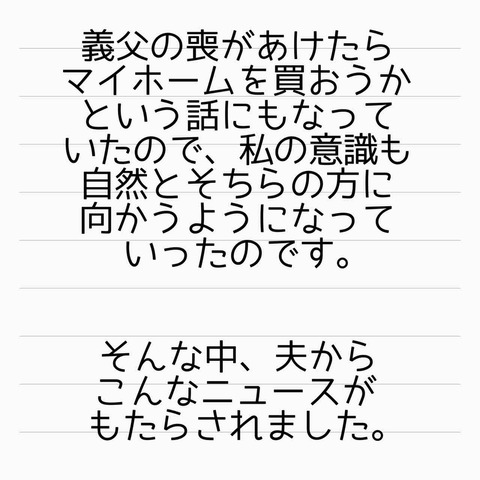 義父の喪があけたら
マイホームを買おうか
という話にもなって
いたので、私の意識も
自然とそちらの方に
向かうようになって
いったのです。
そんな中、夫から
こんなニュースが
もたらされました。